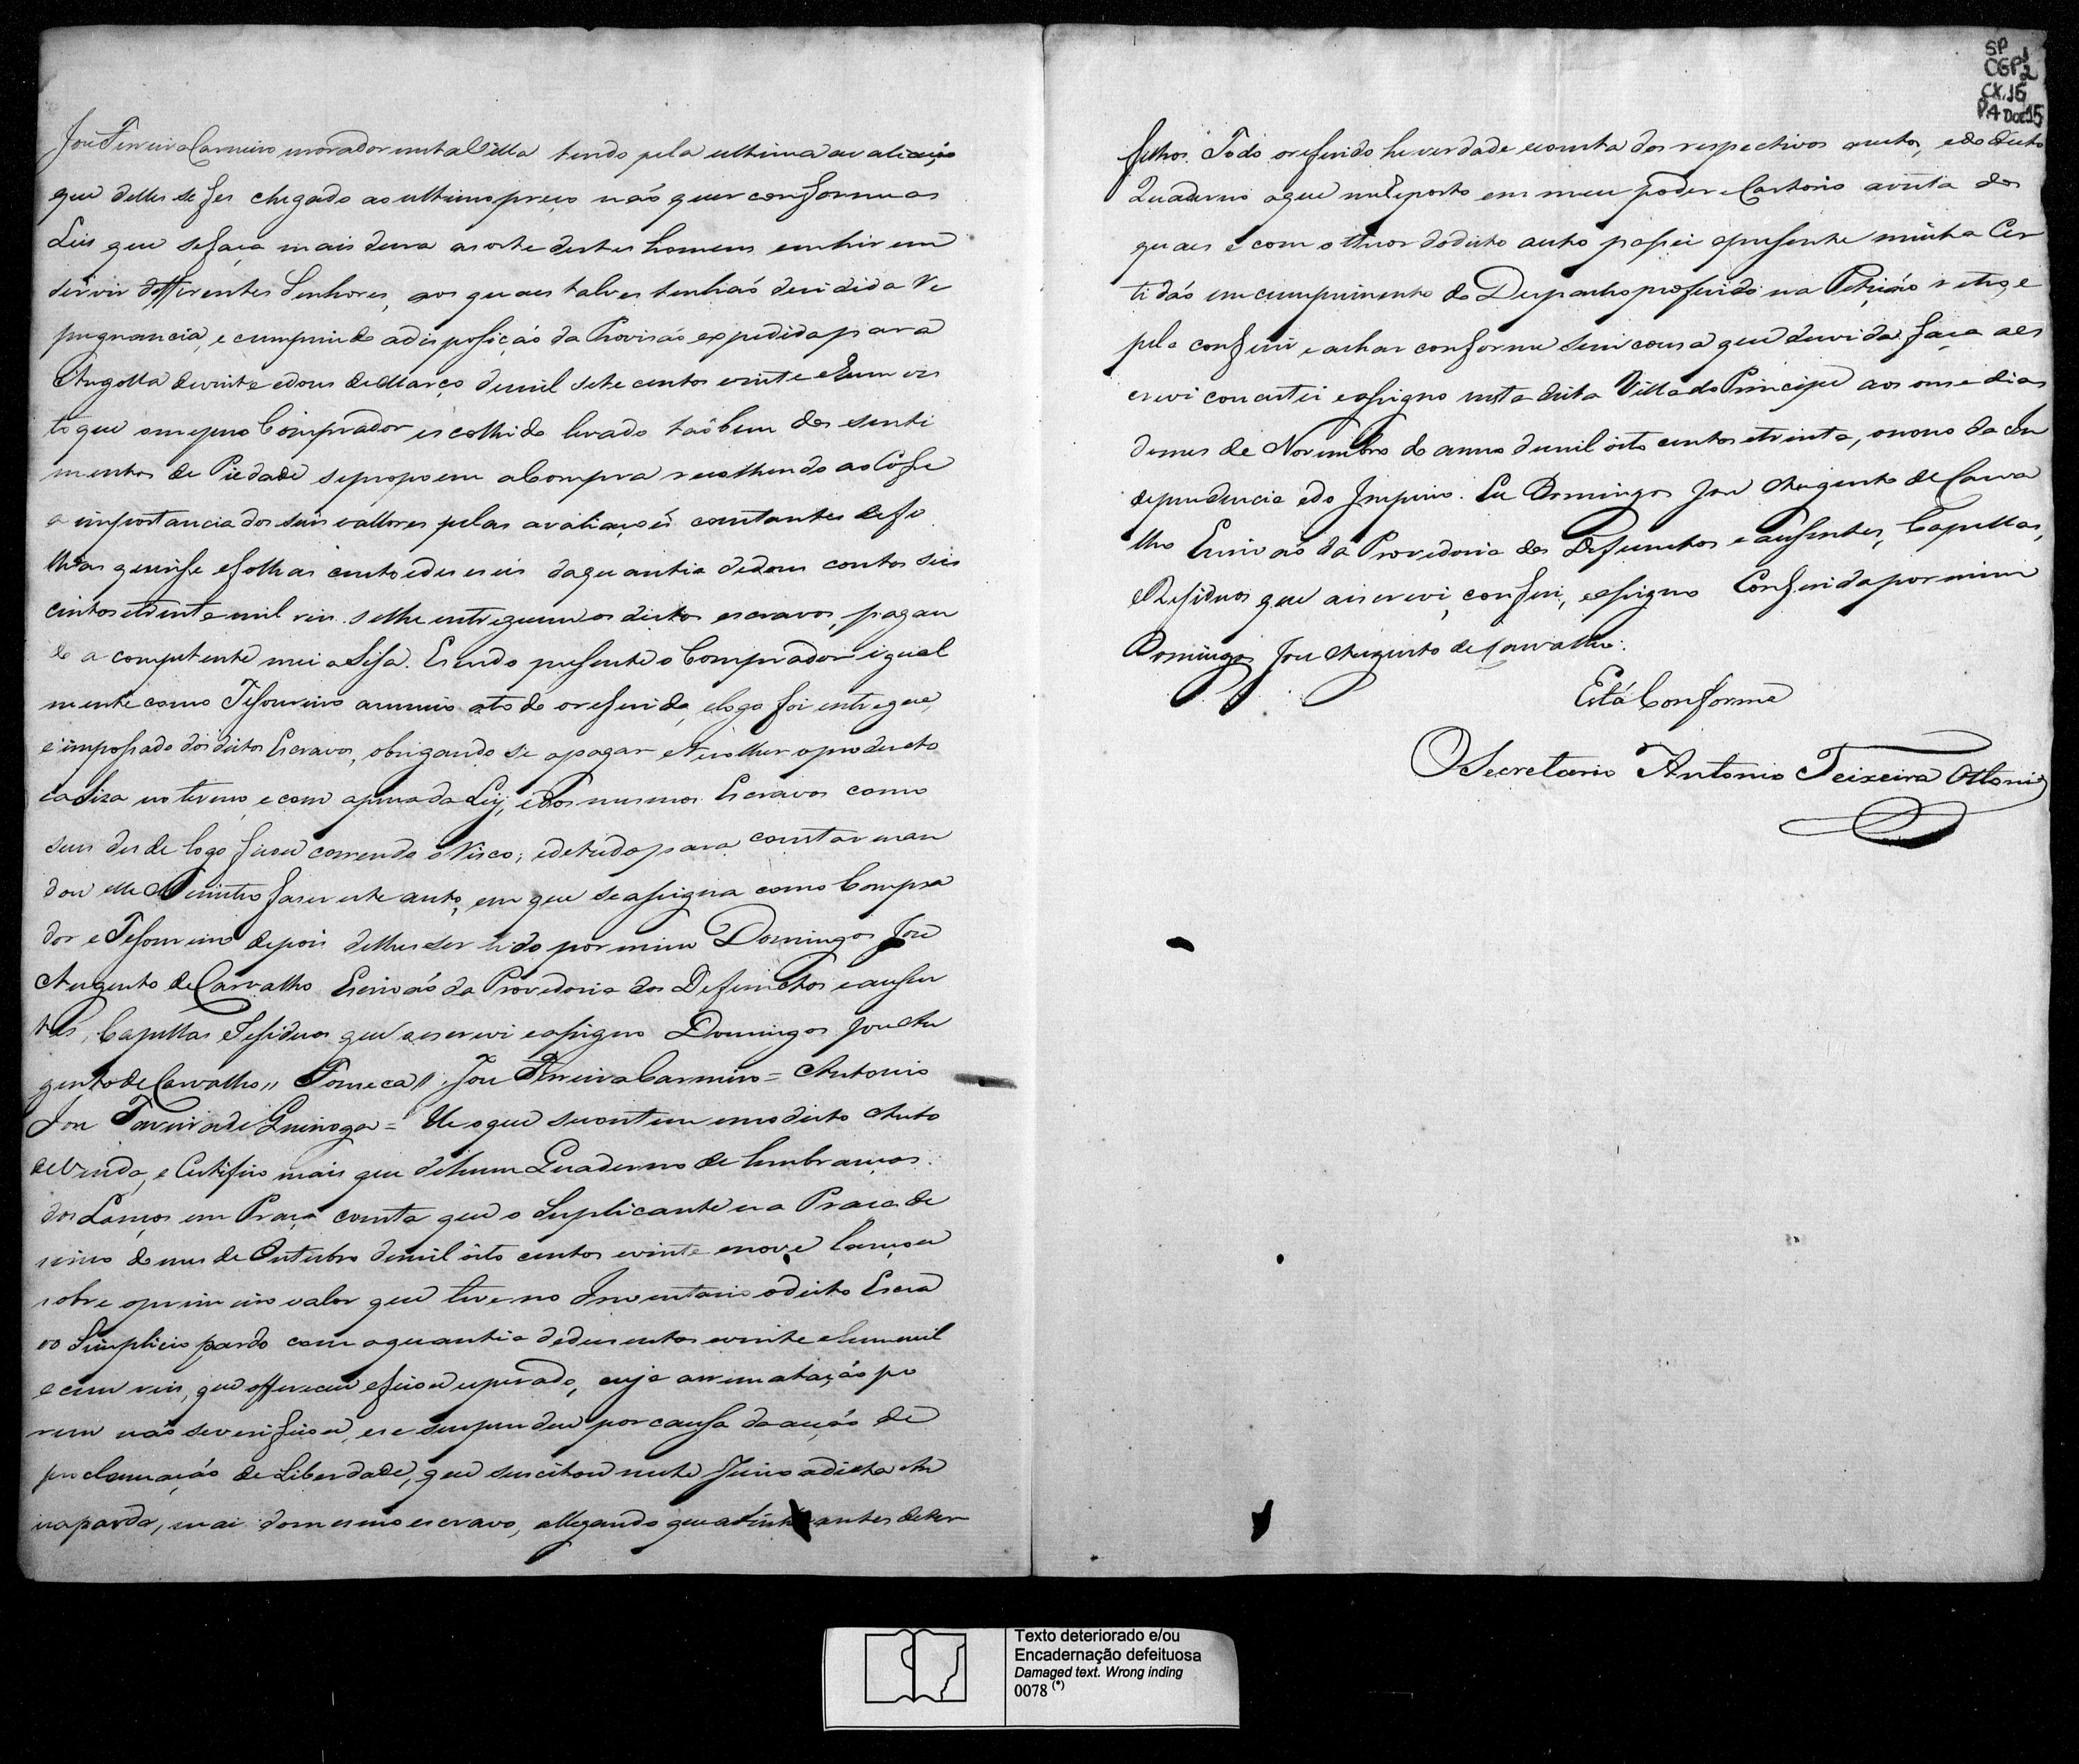 José Ferreira Carneiro morador nesta Villa tendo pela ultima avaliação
que delles se fes chegado ao ultimo preço não quer conforme as
Leis que se faça mais dura a sorte destes homens em hirem
servir differentes Senhores, aos quaes talves tenhão decidida Re
pugnancia, e cumprindo a disposição da Provisão expedida para
Angolla de vinte e dous de Março de mil sete centos vinte e hum vis
to que o mesmo Comprador escolhido levado taõbem dos senti
mentos de Piedade se propoem a Compra recolhendo ao Cofre
a importancia dos seus vallores pelas avaliaçoẽs constantes de fo
lhas quinse e folhas cento e deseseis da quantia de dous contos seis
centos e trinta mil reis se lhe entreguem os dictos escravos, pagan
do a competente meia Sisa. E sendo presente o Comprador igual
mente como Tesoureiro annuio a todo o referido, e logo foi entregue,
e impossado dos dictos Escravos, obrigando se a pagar e recolher o producto
e a Siza no termo, e com a pena da Ley, e dos mesmos Escravos como
seus desde logo ficou correndo o Risco; e de tudo para constar man
dou elle Ministro faser este auto, em que se assigna como Compra
dor e Tesoureiro depois de lhes ser lido por mim Domingos José
Augusto de Carvalho Escrivaõ da Provedoria dos Defunctos e ausen
tes, Capellas e Residuos que a escrevi e assigno Domingos José Au
gusto de Carvalho,, Fonseca,, José Ferreira Carneiro = Antonio
José Taveira de Queiroga = He o que se contem em o dicto Auto
de Venda, e Certifico mais que de hum Quaderno de lembranças
dos Lanços em Praça consta que o Suplicante na Praça de
cinco do mes de Outubro de mil oito centos e vinte e nove lançou
sobre o primeiro valor que teve no Inventario o dicto Escra
vo Simplicio pardo com a quantia de dusentos e vinte e hum mil
e cem reis, que offereceu e ficou esperado, cuja arrematação po
rem não se verificou, e se suspendeu por causa da acção de
proclamação de Liberdade, que suscitou neste Juiso a dicta An
na parda, mai do mesmo escravo, allegando que a tinha antes de ter
SP
CGP 1/2
CX.15
PA DOC 15
filhos. Todo o referido he verdade e consta dos respectivos autos, e do dicto
Quaderno a que me reporto em meu poder e Cartorio a vista dos
quaes e com o theor do dicto auto passei a presente minha Cer
tidaõ em cumprimento do Despacho proferido na Petição retro, e
pela conferir e achar conforme sem cousa que duvida faça a es
crevi concertei e assigno nesta dita Villa do Principe aos onse dias
do mes de Novembro do anno de mil oito centos e trinta, o nono da In
dependencia e do Imperio. Eu Domingos José Augusto de Carva
lho Escrivaõ da Provedoria dos Defunctos e ausentes, Capellas,
e Residuos que a escrevi, conferi, e assigno Conferida por mim
Domingos José Augusto de Carvalho.
Está Conforme
O Secretario Antonio Teixeira Ottoni
Texto deteriorado e/ou
Encadernação defeituosa
Damaged text. Wrong inding
0078 (*)